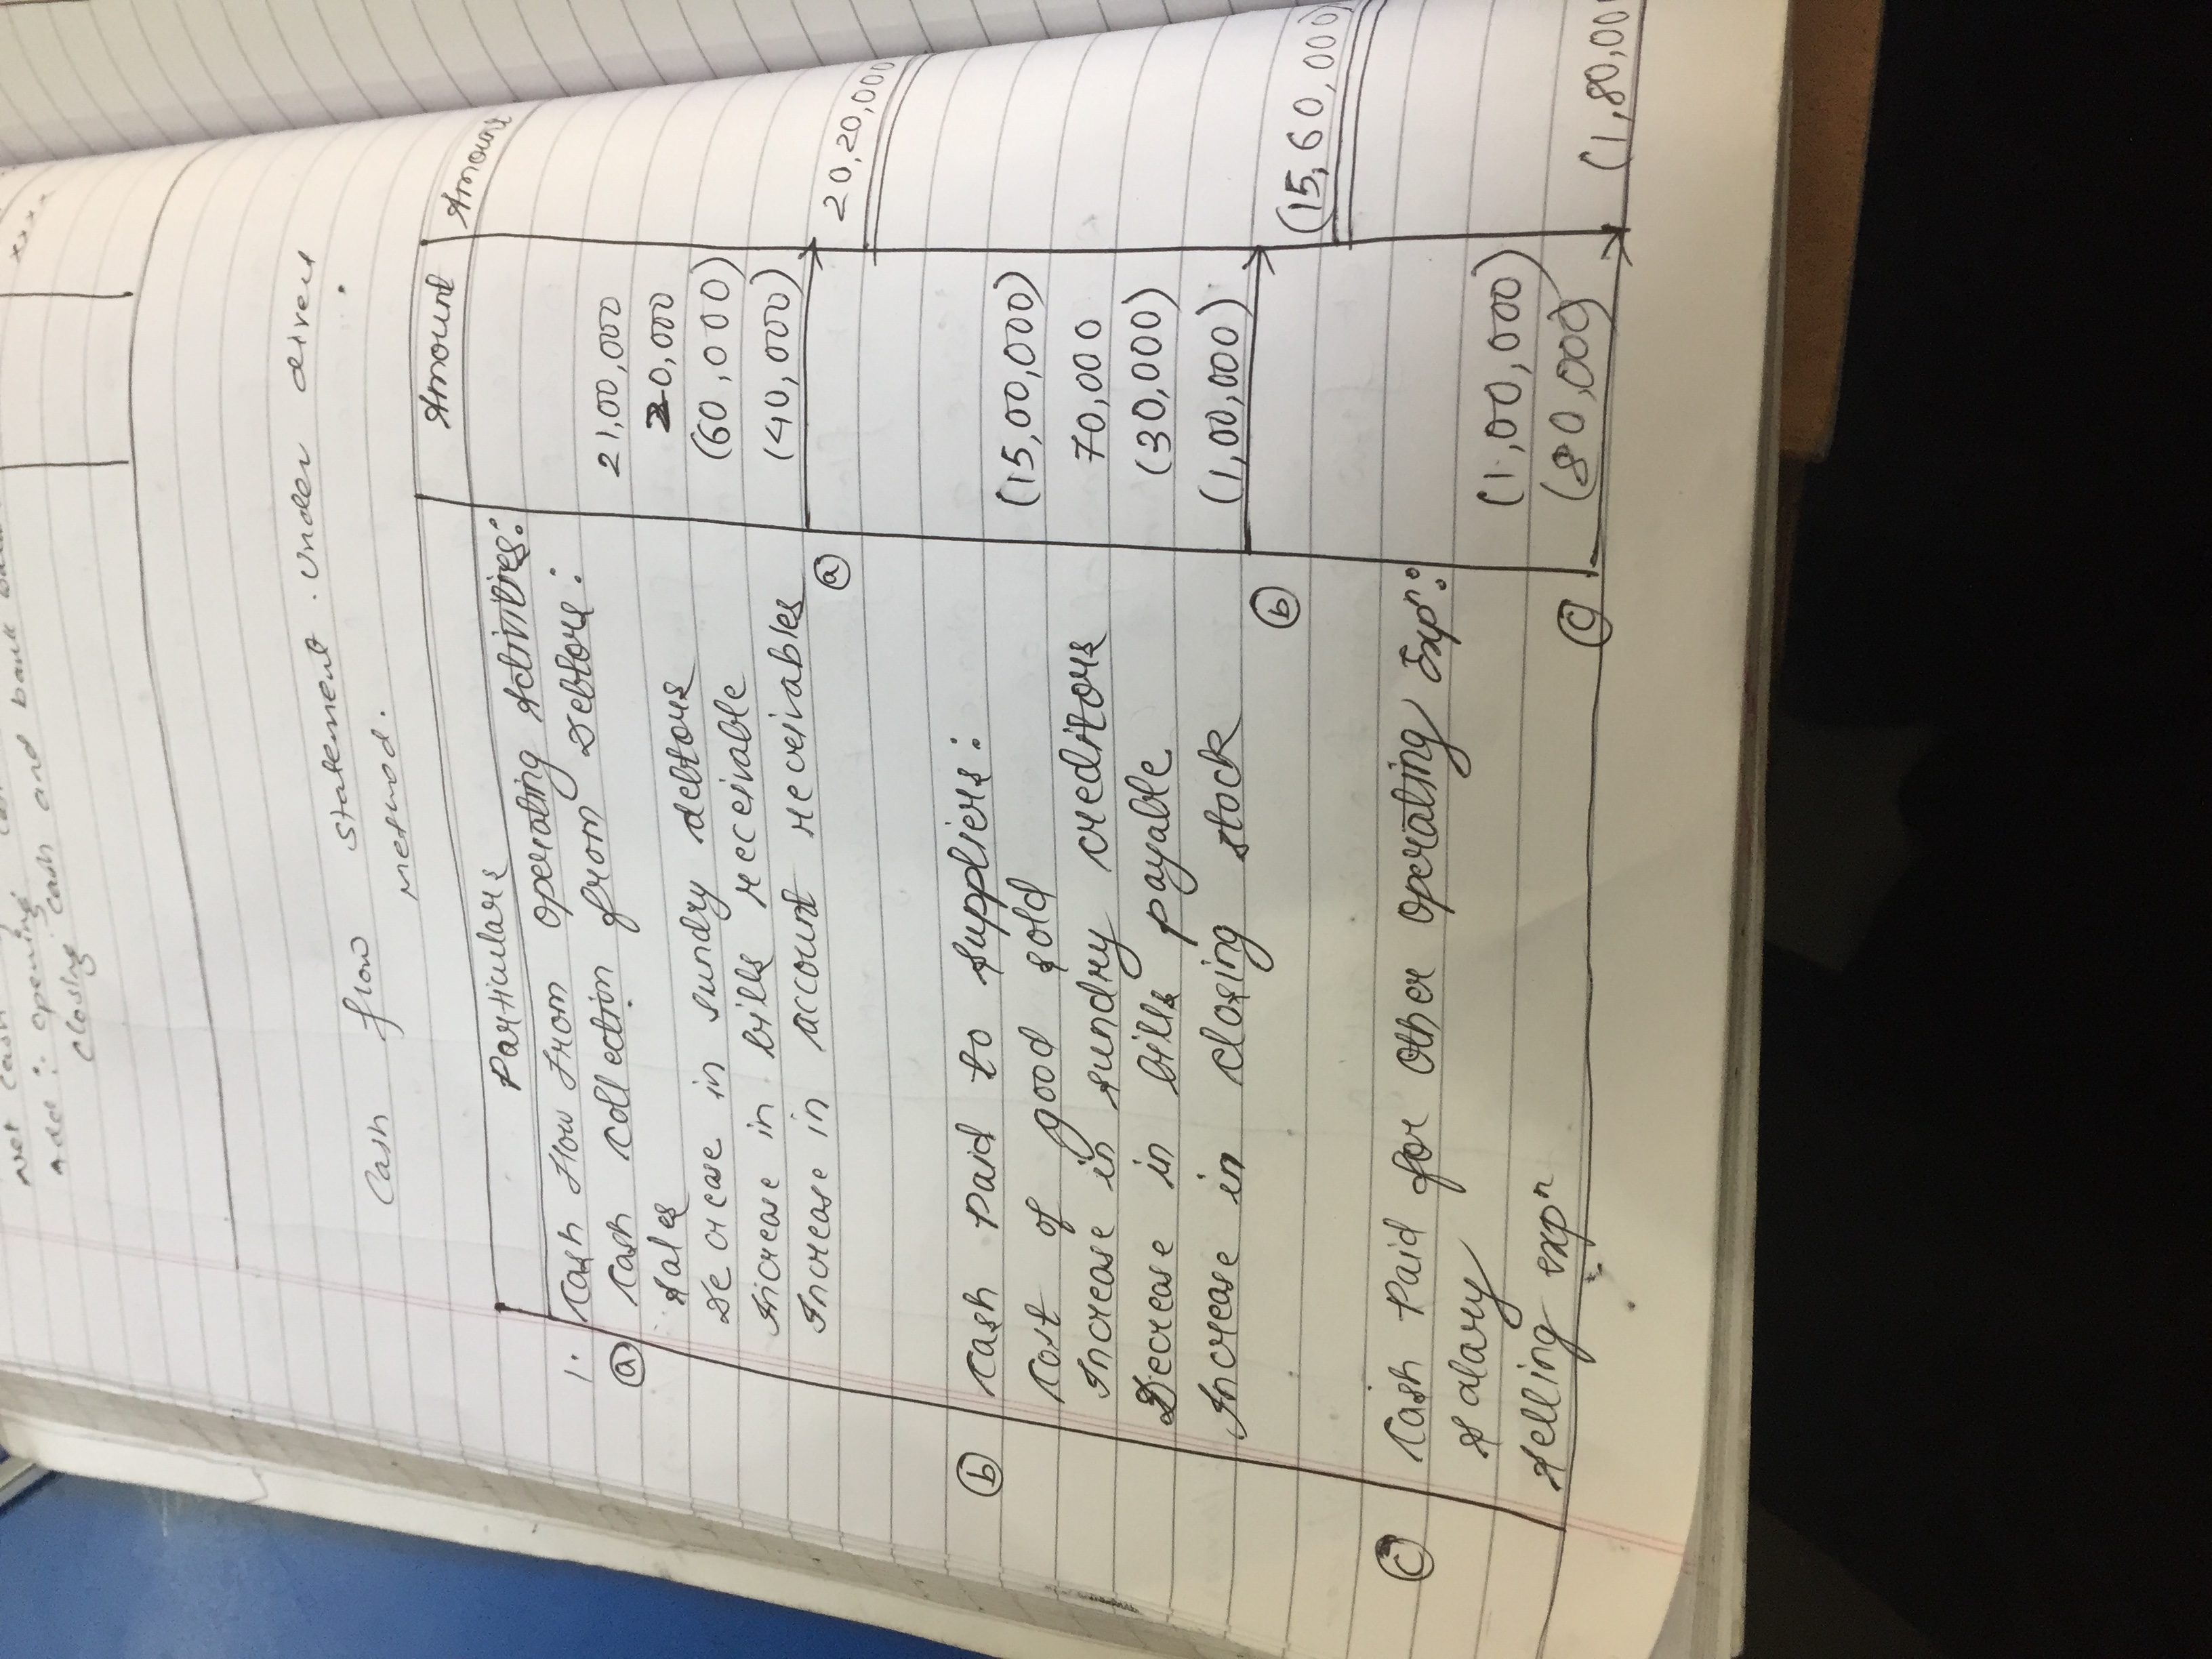 Net Cash
Add : opening
closing cash and bank
xxxx
Cash flow statement . Under direct
Method.
Particulars Amount Amount
1. Cash Flow From Operating Activities:
(a) Cash Collection from Debtors:
Sales 21,00,000
Decrease in sundry debtors 20,000
Increase in bills receivable (60,000)
Increase in account receivables (40,000)
(a) 20,20,000
(b) Cash Paid to Suppliers:
Cost of good sold (15,00,000)
Increase in sundry creditors 70,000
Decrease in bills payable (30,000)
Increase in closing stock (1,00,000)
(b) (15,60,000)
(c) Cash Paid for Other Operating Expn:
Salary (1,00,000)
Selling expn (80,000)
(c) (1,80,00